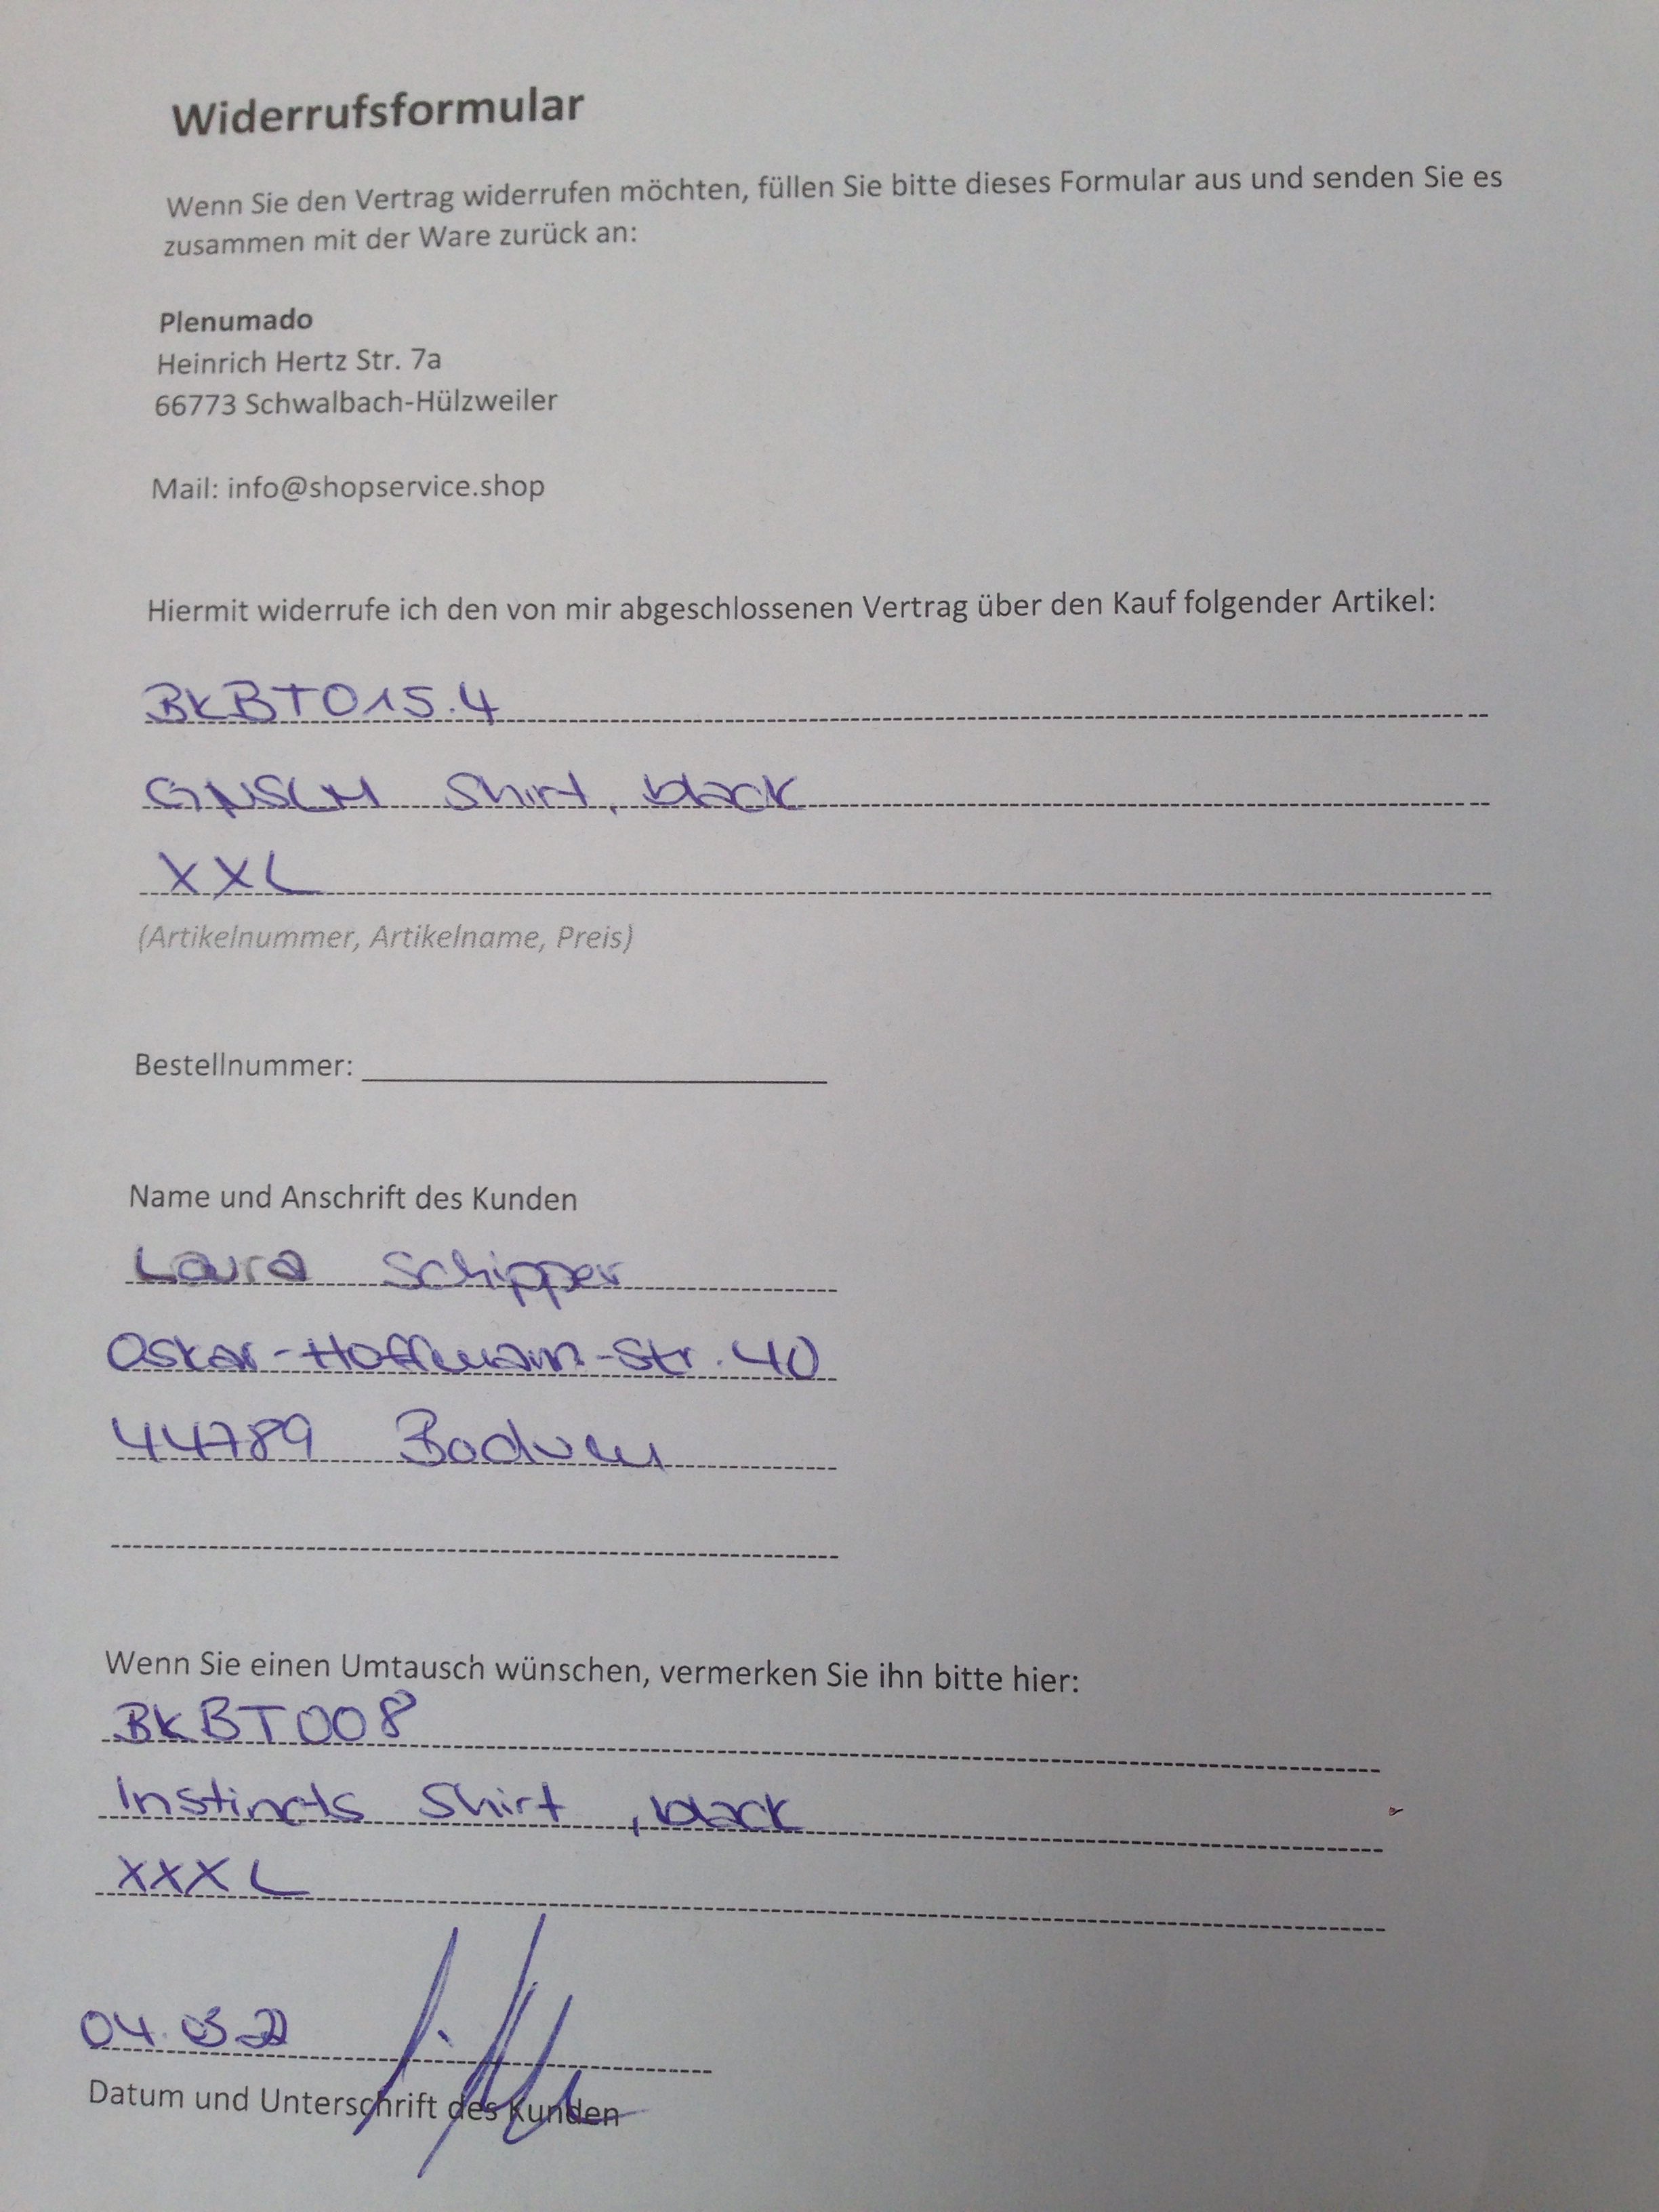 Widerrufsformular
Wenn Sie den Vertrag widerrufen möchten, füllen Sie bitte dieses Formular aus und senden Sie es
zusammen mit der Ware zurück an:
Plenumado
Heinrich Hertz Str. 7a
66773 Schwalbach-Hülzweiler
Mail: info@shopservice.shop
Hiermit widerrufe ich den von mir abgeschlossenen Vertrag über den Kauf folgender Artikel:
BKBT015.4
GNSLM Shirt, black
XXL
(Artikelnummer, Artikelname, Preis)
Bestellnummer:
Name und Anschrift des Kunden
Laura Schipper
Oskar-Hoffmann-Str. 40
44789 Bochum
Wenn Sie einen Umtausch wünschen, vermerken Sie ihn bitte hier:
BKBT008
Instincts Shirt, black
XXXL
04.03.22
Datum und Unterschrift des Kunden